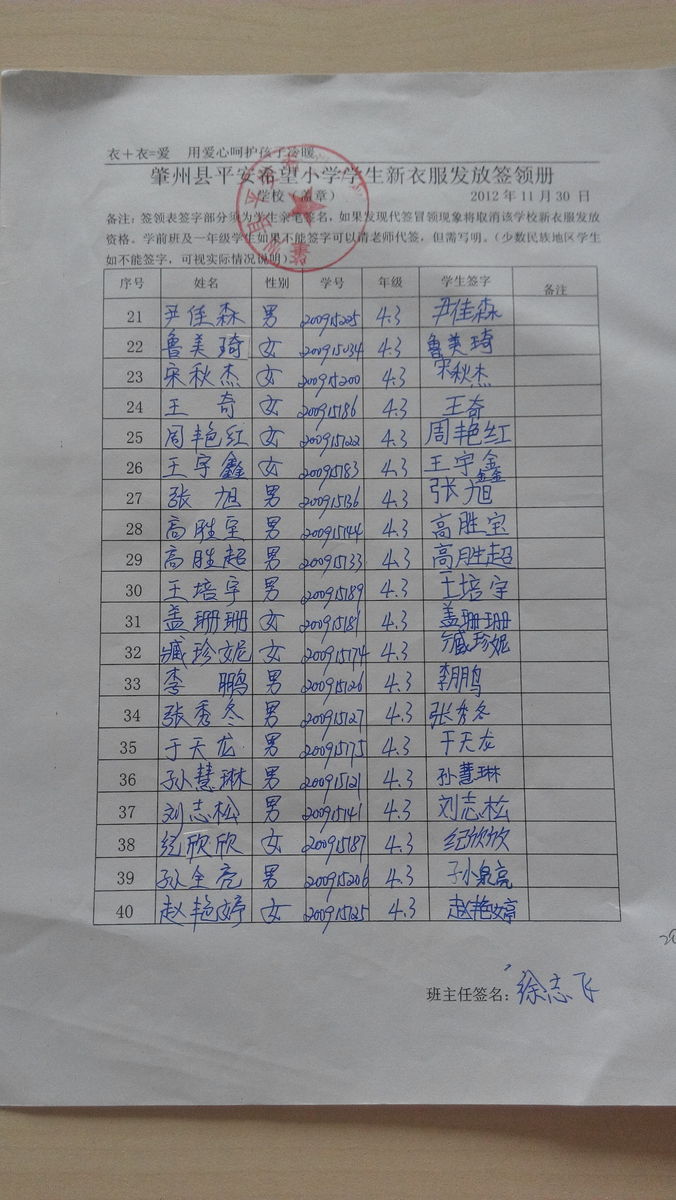 衣＋衣=爱 用爱心呵护孩子冷暖
肇州县平安希望小学学生新衣服发放签领册
学校（盖章） 2012 年 11 月 30 日
备注：签领表签字部分须为学生亲笔签名，如果发现代签冒领现象将取消该学校新衣服发放
资格。学前班及一年级学生如果不能签字可以请老师代签，但需写明。（少数民族地区学生
如不能签字，可视实际情况说明）
序号 姓名 性别 学号 年级 学生签字 备注
21 尹佳森 男 200915225 4.3 尹佳森
22 鲁美琦 女 200915034 4.3 鲁美琦
23 宋秋杰 女 200915200 4.3 宋秋杰
24 王奇 女 200915186 4.3 王奇
25 周艳红 女 200915122 4.3 周艳红
26 王宇鑫 女 200915183 4.3 王宇鑫
27 张旭 男 200915136 4.3 张旭
28 高胜宝 男 200915144 4.3 高胜宝
29 高胜超 男 200915133 4.3 高胜超
30 王培宇 男 200915189 4.3 王培宇
31 盖珊珊 女 200915181 4.3 盖珊珊
32 臧珍妮 女 200915174 4.3 臧珍妮
33 李鹏 男 200915126 4.3 李鹏
34 张秀冬 男 200915127 4.3 张秀冬
35 于天龙 男 200915175 4.3 于天龙
36 孙慧琳 男 200915121 4.3 孙慧琳
37 刘志松 男 200915141 4.3 刘志松
38 纪欣欣 女 200915187 4.3 纪欣欣
39 男 200915206 4.3
40 赵艳婷 女 200915125 4.3 赵艳婷
班主任签名：徐志飞